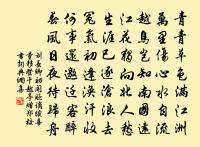 青青草色滿江洲
萬里傷心水自流
越鳥豈知南國遠
江花獨向北人愁
生涯已逐滄浪去
冤氣初逢渙汗收
何事還邀遷客醉
春風日夜待歸舟
劉長卿初聞貶謫續喜
量移登干越亭贈鄭校
書詞典網